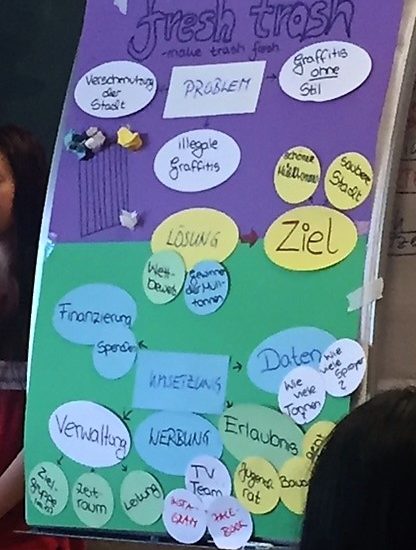 fresh trash
-make trash fresh
Verschmutzung
der
Stadt
PROBLEM
Graffitis
ohne
Stil
illegale
Graffitis
schöner
Mülltonnen
saubere
Stadt
LÖSUNG
Ziel
Wett-
bewerb
Gewinner
der Müll-
tonnen
Finanzierung
Spenden
UMSETZUNG
Daten
Wie
viele
Tonnen
wie
viele Sprayer
?
Verwaltung
WERBUNG
Erlaubnis
Ziel-
gruppe
Zeit-
raum
Leitung
TV
Team
INSTA-
GRAM
FACE-
BOOK
Jugend
rat